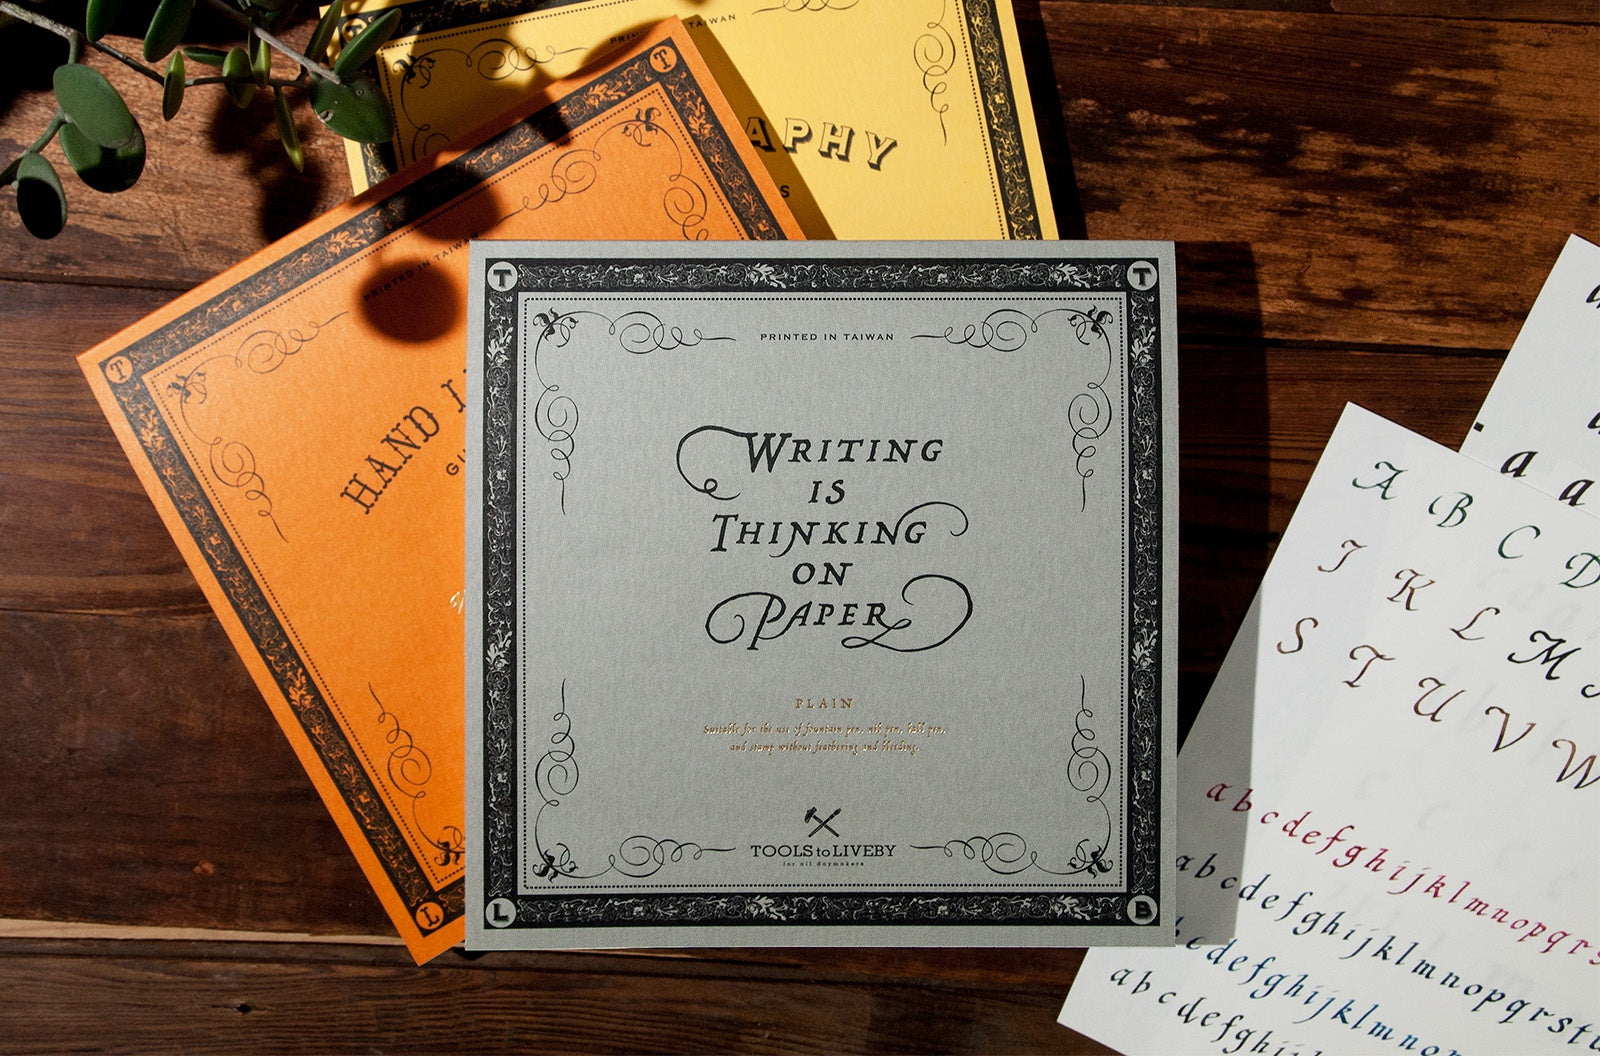 TAIWAN
APHY
S
T
PRINTED IN TAIWAN
T
HAND
GUI
L
T
T
PRINTED IN TAIWAN
WRITING
IS
THINKING
ON
PAPER
PLAIN
Suitable for the use of fountain pen, nib pen, ball pen,
and stamp without feathering and bleeding.
TOOLS to LIVEBY
for all daymakers
L
B
a a
A B C D
J K L M
S T U V W
a b c d e f g h i j k l m n o p q r s
a b c d e f g h i j k l m n o p q r s t u
b c d e f g h i j k l m n o p
a b c d e f g h i j k l m n o